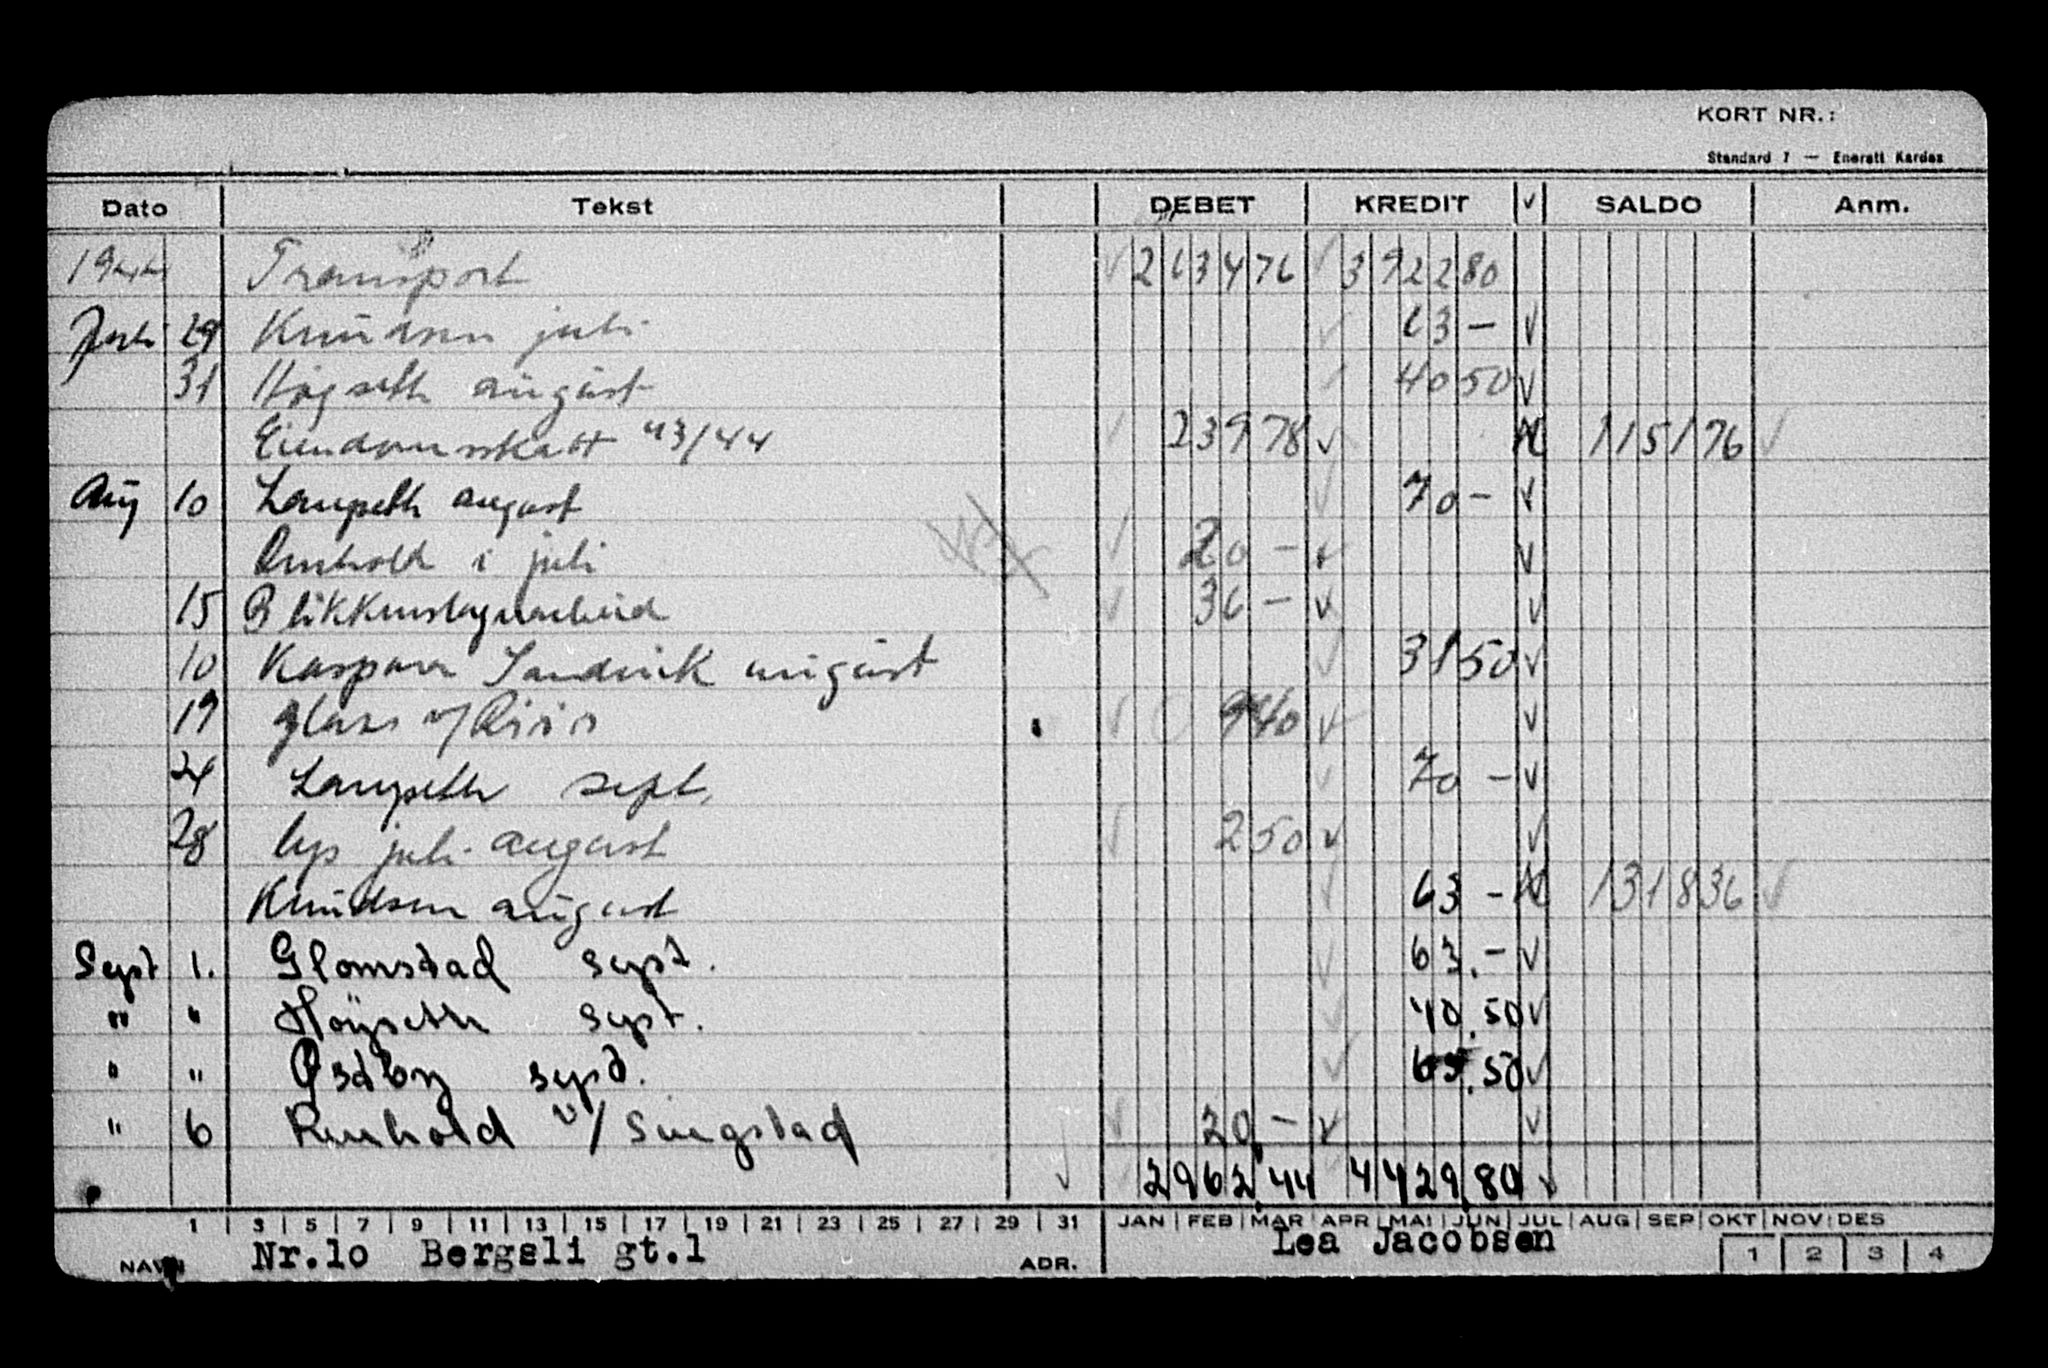 KORT NR.:
Standard 7 — Enerett Kardex
Dato Tekst DEBET KREDIT √ SALDO Anm.
1944 Transport 2634 76 3922 80
Juli 29 Knudsen juli 63 –
31 Høgseth august 40 50
Eiendomsskatt 43/44 239 78 1151 76
Aug 10 Langseth august 70 –
Renhold i juli 20 –
15 Blikkenslagerarbeid 36 –
10 Kaspara Sandvik august 31 50
19 glass 9 40
24 Langseth sept. 70 –
28 lys juli-august 2 50
Knudsen august 63 – 1318 36
Sept 1. Glomstad sept. 63.–
" " Høyseth sept. 40.50
" " Østby sept. 65.50
" 6 Renhold v/ Singstad 20,–
2962,44 4429,80
1 3 5 7 9 11 13 15 17 19 21 23 25 27 29 31 JAN FEB MAR APR MAI JUN JUL AUG SEP OKT NOV DES
NAVN Nr.10 Bergsli gt.1 ADR. Lea Jacobsen 1 2 3 4